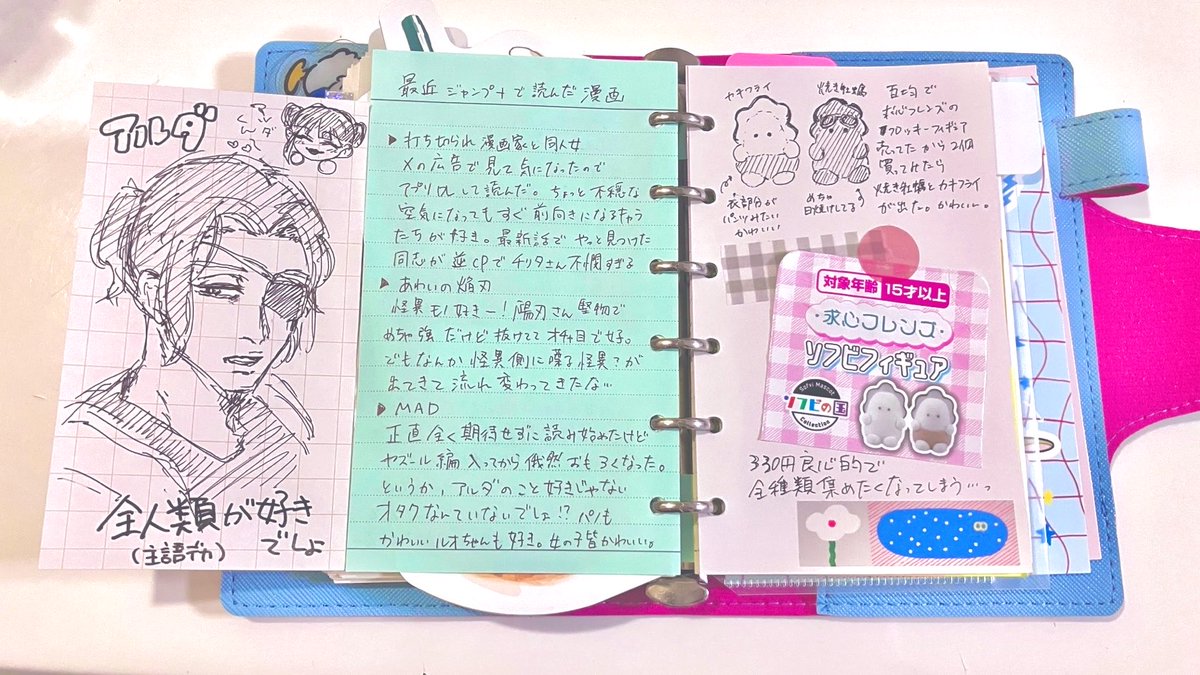 アルダ
アルダ
くーん
全人類が好き
でしょ
(主語デカ)
最近 ジャンプ+で読んだ漫画
▶打ち切られ漫画家と同人女
Xの広告で見て気になったので
アプリDLして読んだ。ちょっと不穏な
空気になってもすぐ前向きになるキャラ
たちが好き。最新話でやっと見つけた
同志が逆CPでチリタさん不憫すぎる
▶あわいの焔刃
怪異モノ好きー!陽刃さん堅物で
めちゃ強だけど抜けててオチャ目で好。
でもなんか怪異側に喋る怪異?が
出てきて流れ変わってきたな…
▶MAD
正直全く期待せずに読み始めたけど
ヤズール編入ってから俄然おもろくなった。
というか、アルダのこと好きじゃない
オタクなんていないでしょ!?パノも
かわいいルオちゃんも好き。女の子皆かわいい。
カキフライ
焼き牡蠣
衣部分が
パンツみたい
かわいい
めちゃ
日焼けしてる
百均で
求心フレンズの
フロッキーフィギュア
売ってたから2個
買ってみたら
焼き牡蠣とカキフライ
が出た。かわいい。
対象年齢 15才以上
求心フレンズ
ソフビフィギュア
Sofvi Mascot
ソフビの国
Collection
330円良心的で
全種類集めたくなってしまう…っ